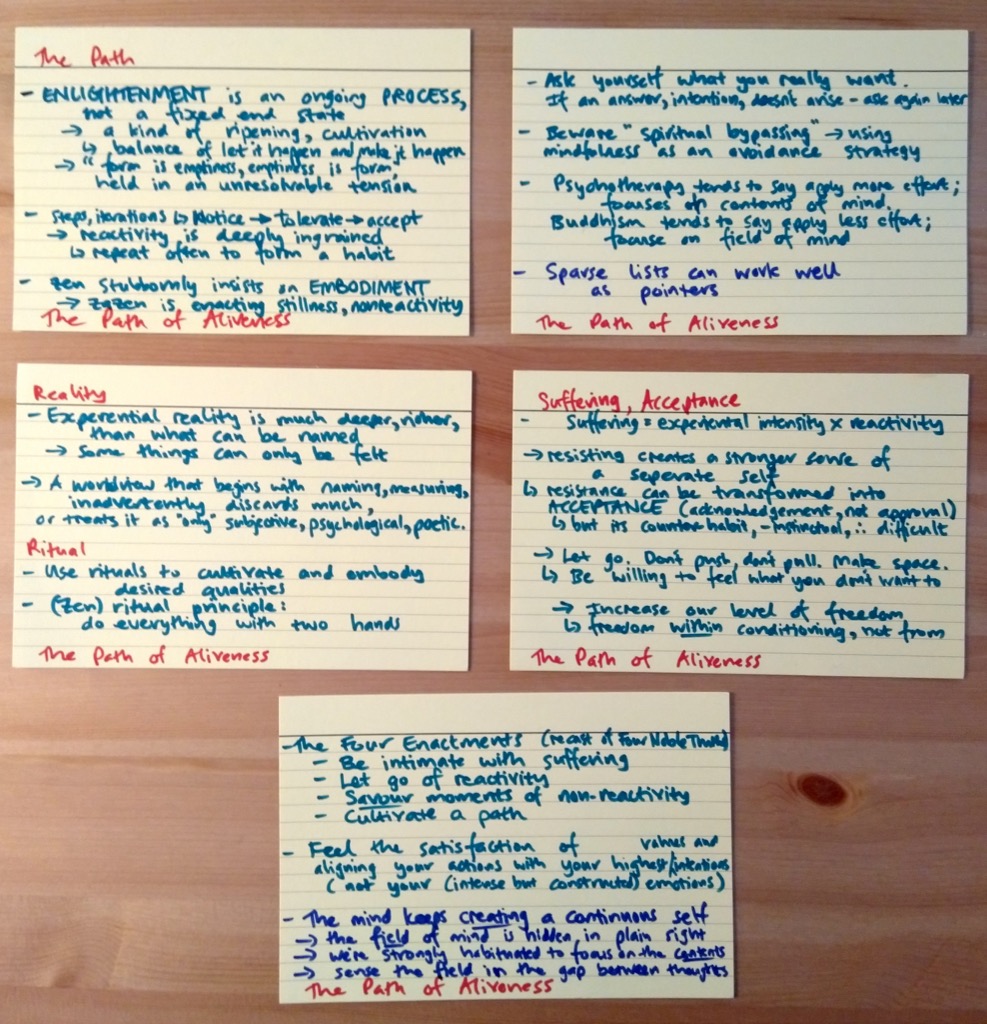 The Path
- ENLIGHTENMENT is an ongoing PROCESS,
not a fixed end state
→ a kind of ripening, cultivation
↳ balance of let it happen and make it happen
→ "form is emptiness, emptiness is form",
held in an unresolvable tension
- Steps, iterations ↳ Notice → tolerate → accept
→ reactivity is deeply ingrained
↳ repeat often to form a habit
- Zen stubbornly insists on EMBODIMENT
→ zazen is enacting stillness, nonreactivity
The Path of Aliveness
- Ask yourself what you really want.
If an answer, intention, doesn't arise - ask again later
- Beware "spiritual bypassing" → using
mindfulness as an avoidance strategy
- Psychotherapy tends to say apply more effort;
focuses on contents of mind.
Buddhism tends to say apply less effort;
focuse on field of mind
- Sparse lists can work well
as pointers
The Path of Aliveness
Reality
- Experiential reality is much deeper, richer,
than what can be named
→ Some things can only be felt
→ A worldview that begins with naming, measuring,
inadvertently discards much,
or treats it as "only" subjective, psychological, poetic.
Ritual
- Use rituals to cultivate and embody
desired qualities
- (Zen) ritual principle:
do everything with two hands
The Path of Aliveness
Suffering, Acceptance
- Suffering = experiental intensity x reactivity
→ resisting creates a stronger sense of
a seperate self
↳ resistance can be transformed into
ACCEPTANCE (acknowledgement, not approval)
↳ but its counter habit, -instinctual, ∴ difficult
→ Let go. Don't push, don't pull. Make space.
↳ Be willing to feel what you don't want to
→ Increase our level of freedom
↳ freedom within conditioning, not from
The Path of Aliveness
- The Four Enactments (recast of Four Noble Truths)
- Be intimate with suffering
- Let go of reactivity
- Savour moments of non-reactivity
- Cultivate a path
- Feel the satisfaction of values and
aligning your actions with your highest/intentions
(not your (intense but constructed) emotions)
- The mind keeps creating a continuous self
→ the field of mind is hidden in plain sight
→ we're strongly habituated to focus on the contents
→ sense the field in the gap between thoughts
The Path of Aliveness